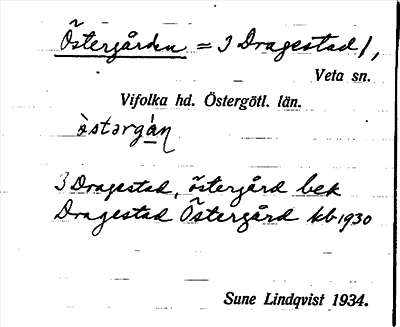 Östergården = 3 Dragestad /,
Veta sn.
Vifolka hd. Östergötl. län.
östərgán
3 Dragestad, östergård bek
Dragestad Östergård kb 1930
Sune Lindqvist 1934.